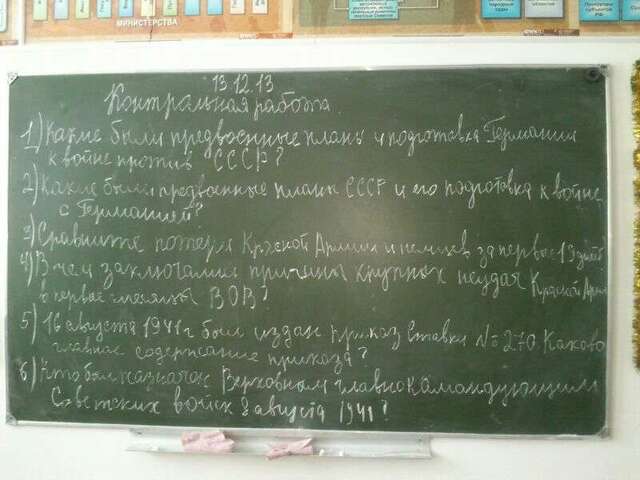 МИНИСТЕРСТВА
13.12.13
Контрольная работа.
1) Какие были предвоенные планы и подготовка Германии
к войне против СССР?
2) Какие были предвоенные планы СССР и его подготовка к войне
с Германией?
3) Сравните потери Красной Армии и немцев за первые
4) В чем заключались причины крупных неудач Красной Арм
в первые месяцы ВОВ?
5) 16 августа 1941 г был издан приказ Ставки №270. Каково
главное содержание приказа?
6) Кто был назначен Верховным главнокомандующим
Советских войск 8 августа 1941?